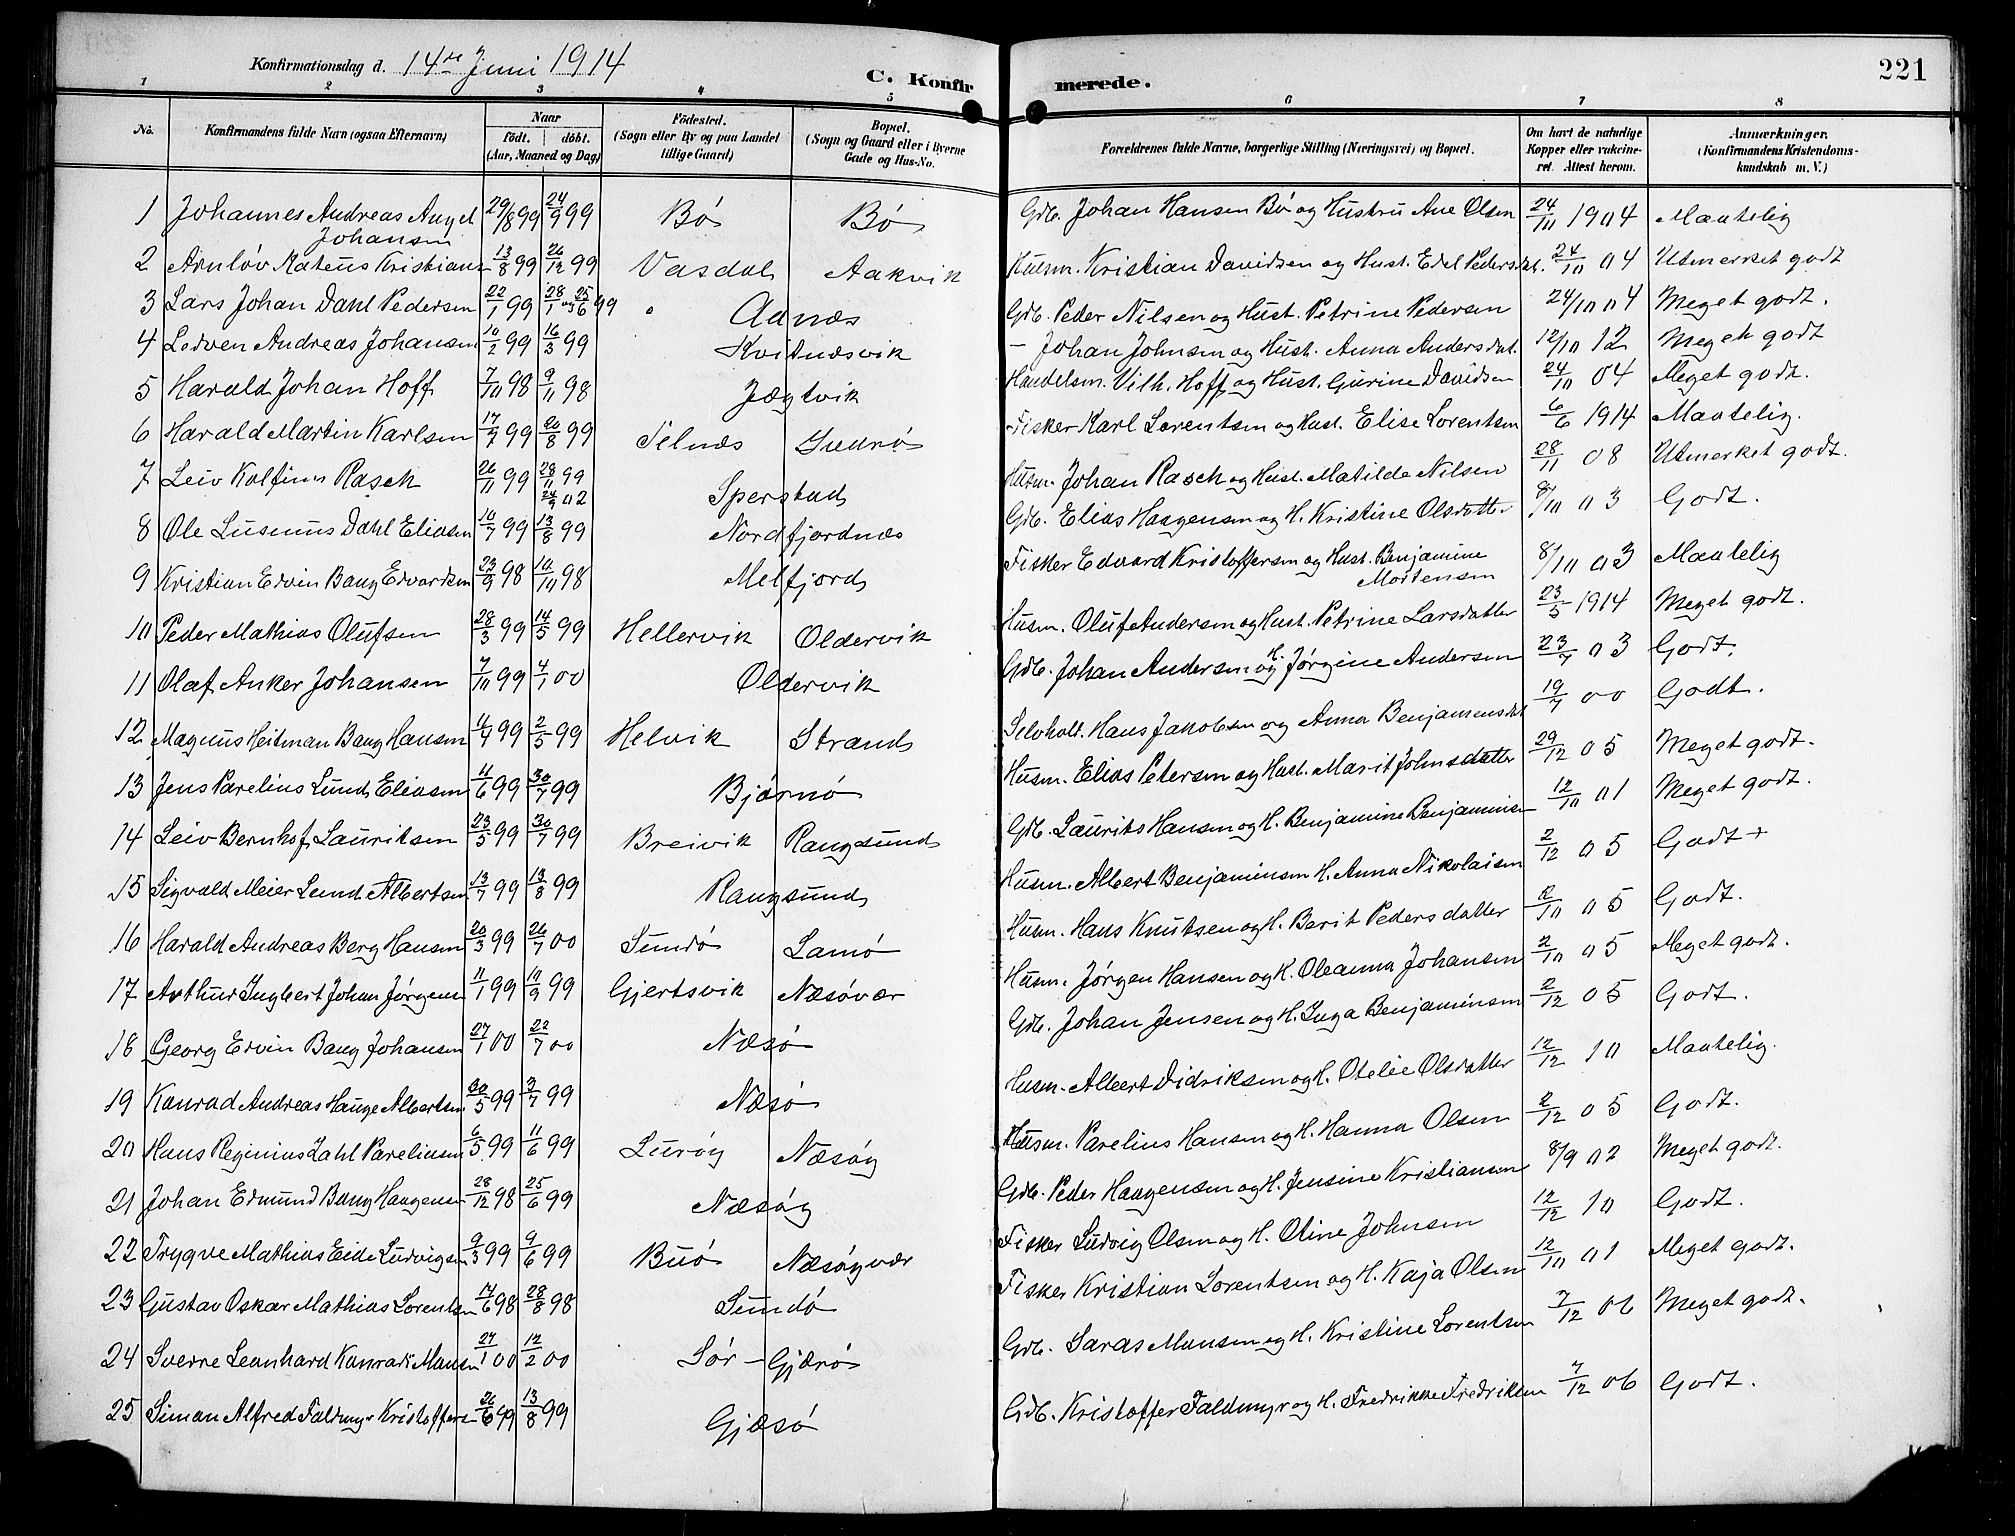 Konfirmationsdag d. 14de Juni 1914
C. Konfirmerede.
221
1 2 3 4 5 6 7 8
No. Konfirmandens fulde Navn (ogsaa Efternavn) Naar födt. döbt. (Aar, Maaned og Dag) Födested. (Sogn eller By og paa Landet tillige Gaard) Bopæl. (Sogn og Gaard eller i Byerne Gade og Hus-No. Forældrenes fulde Navne, borgerlige Stilling (Næringsvei) og Bopæl. Om havt de naturlige Kopper eller vakcineret. Attest herom. Anmærkninger. (Konfirmandens Kristendomskundskab m. V.)
1 Johannes Andreas Angel Johansen 29/8 99 24/9 99 Bö Bö Gdb. Johan Hansen Bö og Hustru Ane Olsen 24/10 1904 Maatelig
2 Arnlöv Mateus Kristians 13/8 99 26/12 99 Vasdal Aakvik Husm. Kristian Davidsen og Hust. Edel Pedersdat. 24/10 04 Utmerket godt
3 Lars Johan Dahl Pedersen 22/1 99 28/1 og 25/6 99 " Adnæs Gdb. Peder Nilsen og Hust. Petrine Pedersen 24/10 04 Meget godt.
4 Ledven Andreas Johansen 10/2 99 16/3 99 Kvitnæsvik – Johan Johnsen og Hust. Anna Andersdat. 12/10 12 Meget godt
5 Harald Johan Hoff 7/10 98 9/11 98 Jægtvik Handelsm. Vilh. Hoff og Hust. Gurine Davidsen 24/10 04 Meget godt.
6 Harald Martin Karlsen 17/7 99 20/8 99 Selnæs Fisker Karl Lorentsen og Hust. Elise Lorentsen 6/6 1914 Maatelig.
7 Leiv Kolfinn Rasch 26/11 99 28/11 99 24/9 02 Sperstad Husm. Johan Rasch og Hust. Matilde Nilsen 28/11 08 Utmerket godt.
8 Ole Lusenius Dahl Eliasen 10/7 99 13/8 99 Nordfjordnæs Gdb. Elias Haagensen og H. Kristine Olsdatter 8/10 03 Godt.
9 Kristian Edvin Bang Edvardsen 23/9 98 10/10 98 Melfjord Fisker Edvard Kristoffersen og Hust. Benjamine Mortensen 8/10 03 Maatelig
10 Peder Mathias Olufsen 28/3 99 14/5 99 Hellervik Oldervik Husm. Oluf Andersen og Hust. Petrine Larsdatter 23/5 1914 Meget godt.
11 Olaf Anker Johansen 7/10 99 4/1 00 Oldervik Gdb. Johan Andersen og H. Jørgine Andersen 23/7 03 Godt.
12 Magnus Heitman Bang Hansen 4/4 99 2/5 99 Helvik Strand Selvhold. Hans Jakobsen og Anna Benjaminsdat 19/7 00 Godt.
13 Jens Parelius Lund Eliasen 11/6 99 30/7 99 Bjärnö Husm. Elias Petersen og Hust. Marit Johnsdatter 29/12 05 Meget godt.
14 Leiv Bernhof Lauritsen 23/5 99 30/7 99 Breivik Rangsund Gdb. Laurits Hansen og H. Benjamine Benjaminsen 12/10 01 Meget godt.
15 Sigvald Meier Lund Albertsen 13/7 99 13/8 99 Rangsund Husm. Albert Benjaminsen H. Anna Nikolaisen 2/12 05 Godt +
16 Harald Andreas Berg Hansen 20/3 99 26/7 00 Sundö Lamö Husm. Hans Knutsen og H. Berit Pedersdatter 2/10 05 Godt.
17 Arthur Ingbert Johan Jørgens 11/1 99 10/9 99 Gjertsvik Næsövær Husm. Jørgen Hansen og H. Oleanna Johansen 2/10 05 Meget godt.
18 Georg Edvin Bang Johansen 27/1 00 22/7 00 Næsö Gdb. Johan Jensen og H. Inga Benjaminsen 2/12 05 Godt.
19 Konrad Andreas Hauge Albertsen 30/5 99 3/7 99 Næsö Husm. Albert Didriksen og H. Otelie Olsdatter 12/12 10 Maatelig.
20 Hans Reginius Dahl Pareliusen 6/5 99 11/6 99 Luröy Næsöy Husm. Parelius Hansen og H. Hanna Olsen 2/12 05 Godt.
21 Johan Edmund Bang Haagensen 28/12 98 25/6 99 Næsöy Gdb. Peder Haagensen og H. Jensine Kristiansen 8/9 02 Meget godt.
22 Trygve Mathias Eide Ludvigsen 9/3 99 9/6 99 Buö Næsöyvær Fisker Ludvig Olsen og H. Oline Johnsen 12/12 10 Godt.
23 Gustav Oskar Mathias Lorentsen 14/6 98 28/8 98 Sundö Fisker Kristian Lorentsen og H. Kaja Olsen 12/10 01 Meget godt.
24 Sverre Leonhard Konradi Monsen 27/1 00 12/2 00 Sör-Gjærö Gdb. Saras Monsen og H. Kristine Lorentsen 7/12 06 Meget godt.
25 Simon Alfred Faldmyr Kristoffers 26/6 99 13/8 99 Gjæsö Gdb. Kristoffer Faldmyr og H. Fredrikke Fredriksen 7/12 06 Godt.